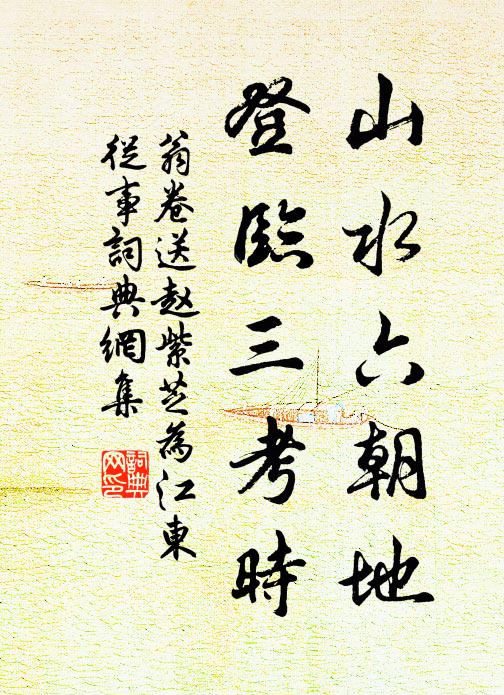 山水六朝地
登臨三考時
翁卷送赵紫芝為江東
從事詞典網集
詞典网印